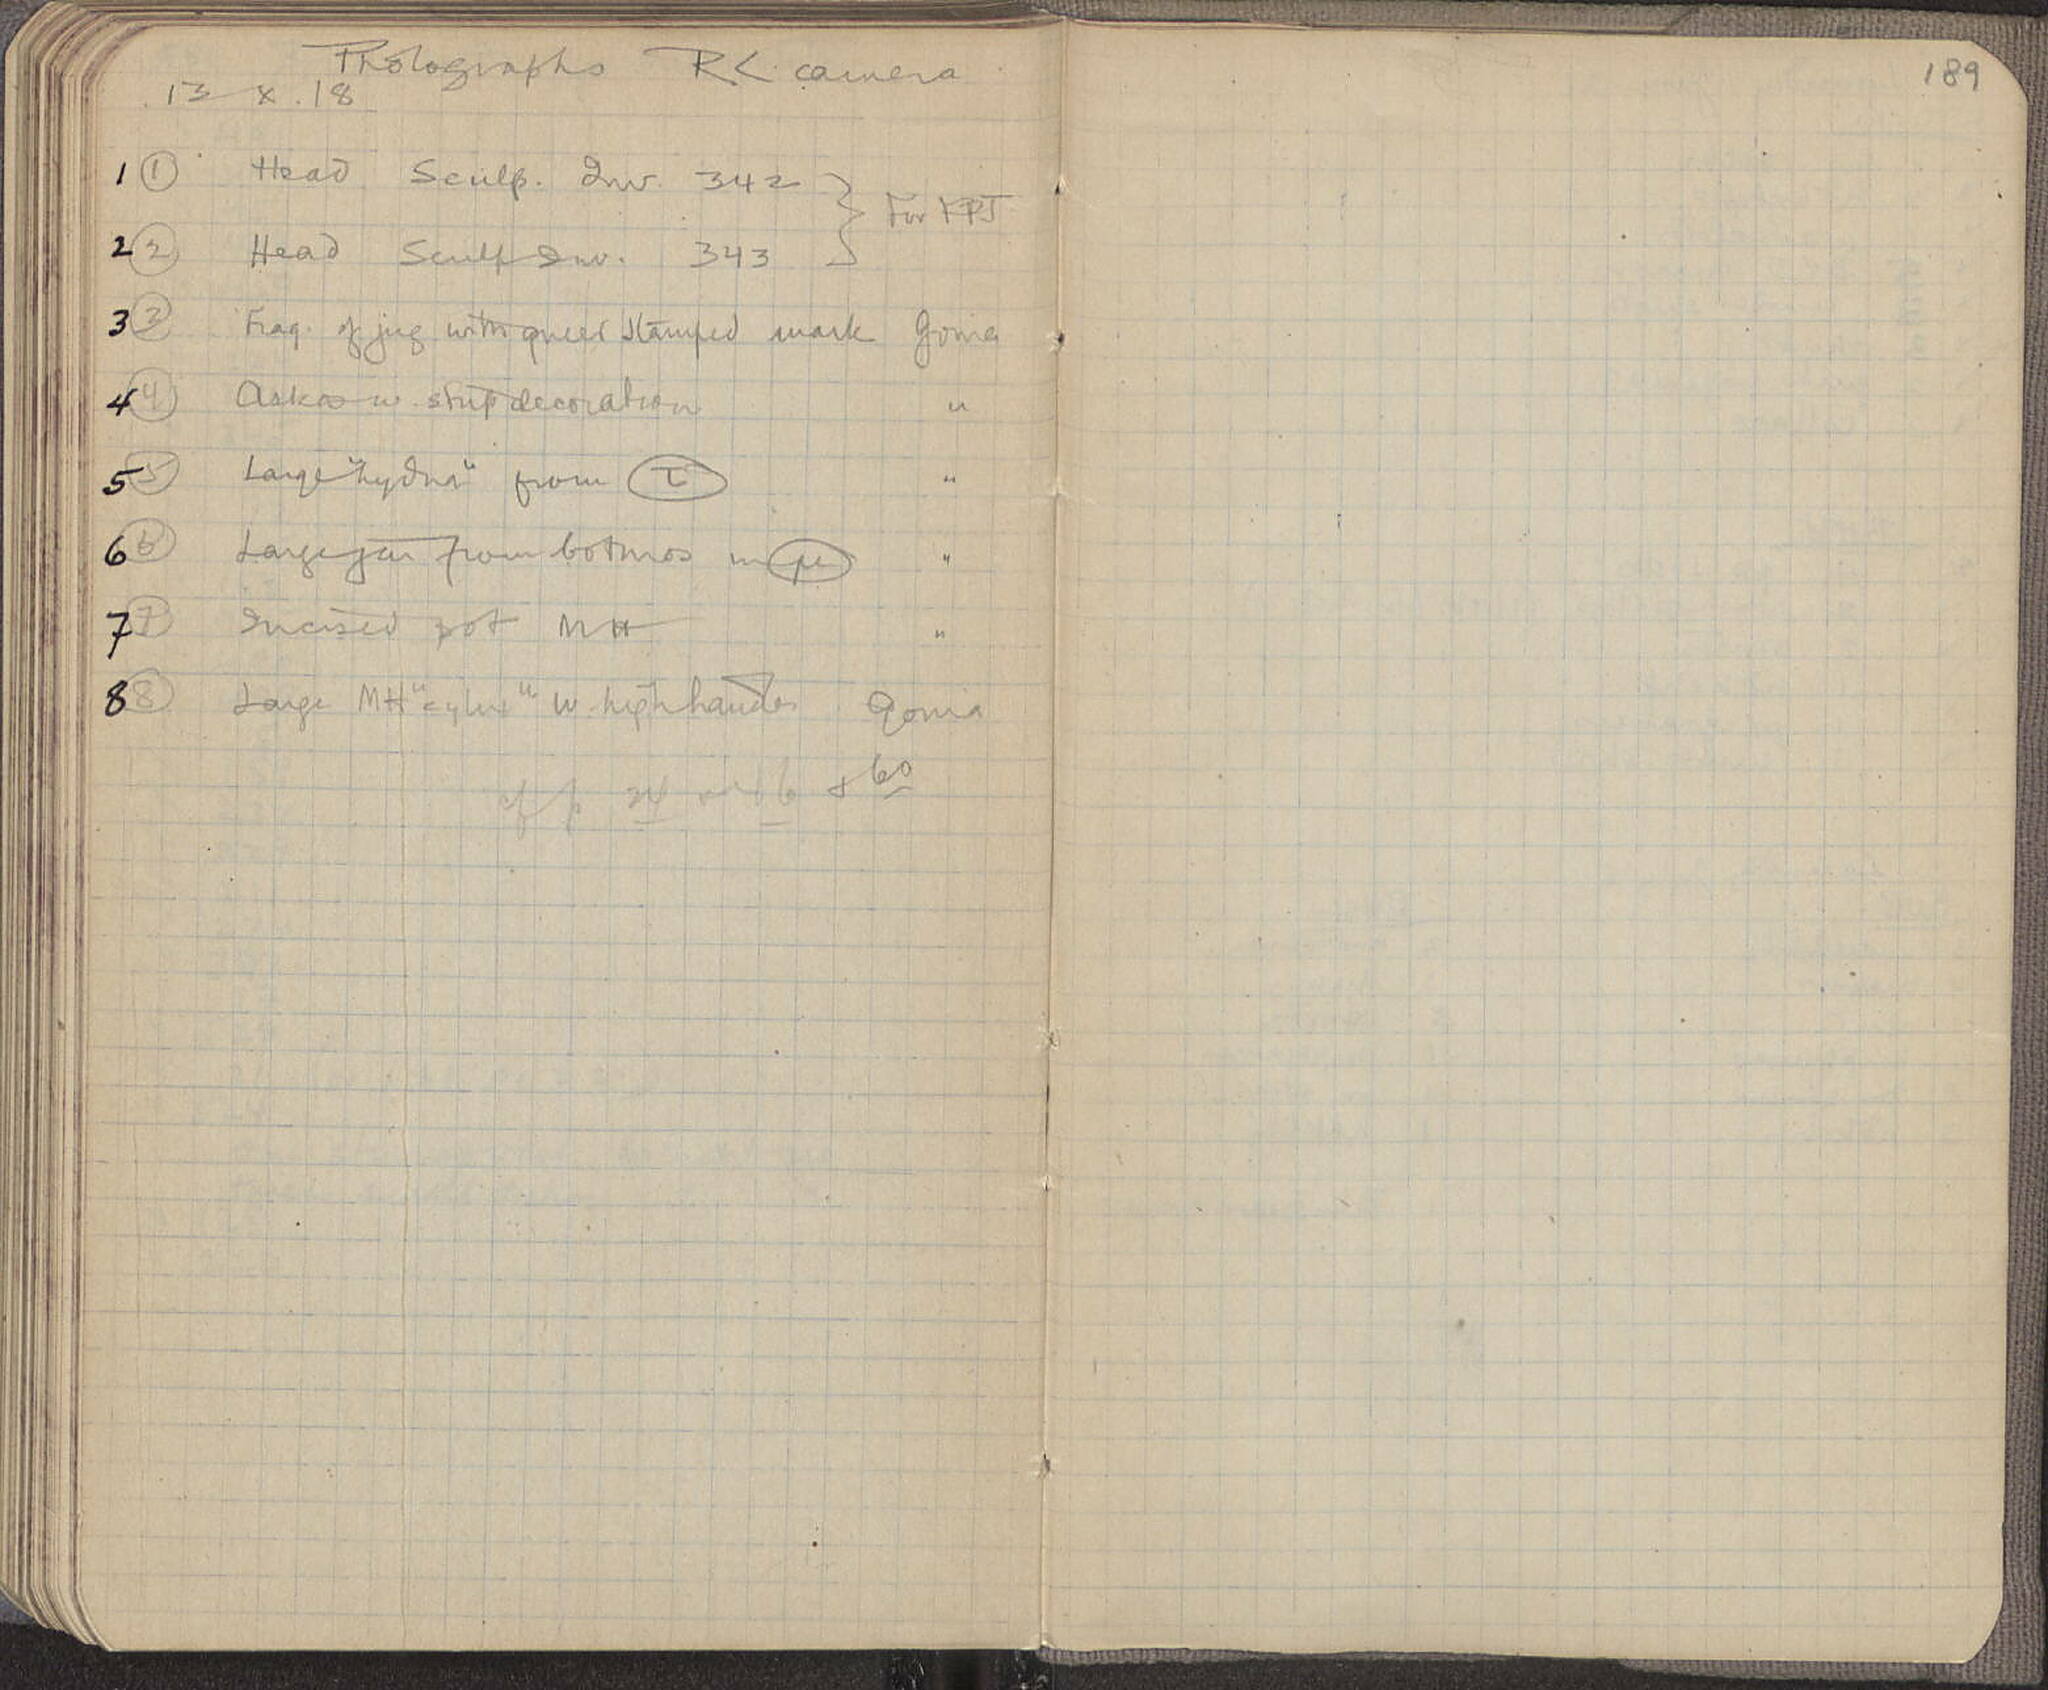 Photographs RC camera
13 x .18
1 ① Head Sculp. Inv. 342
For FPJ
2 ② Head Sculp Inv. 343
3 ③ Frag. of jug with queer stamped mark Gonia
4 ④ Askos w. strip decoration "
5 ⑤ Large "hydria" from τ "
6 ⑥ Large jar from bothros in μ "
7 ⑦ Incised pot MH "
8 ⑧ Large MH "cylix" w. high handles Gonia
cf p 24 & 60
189